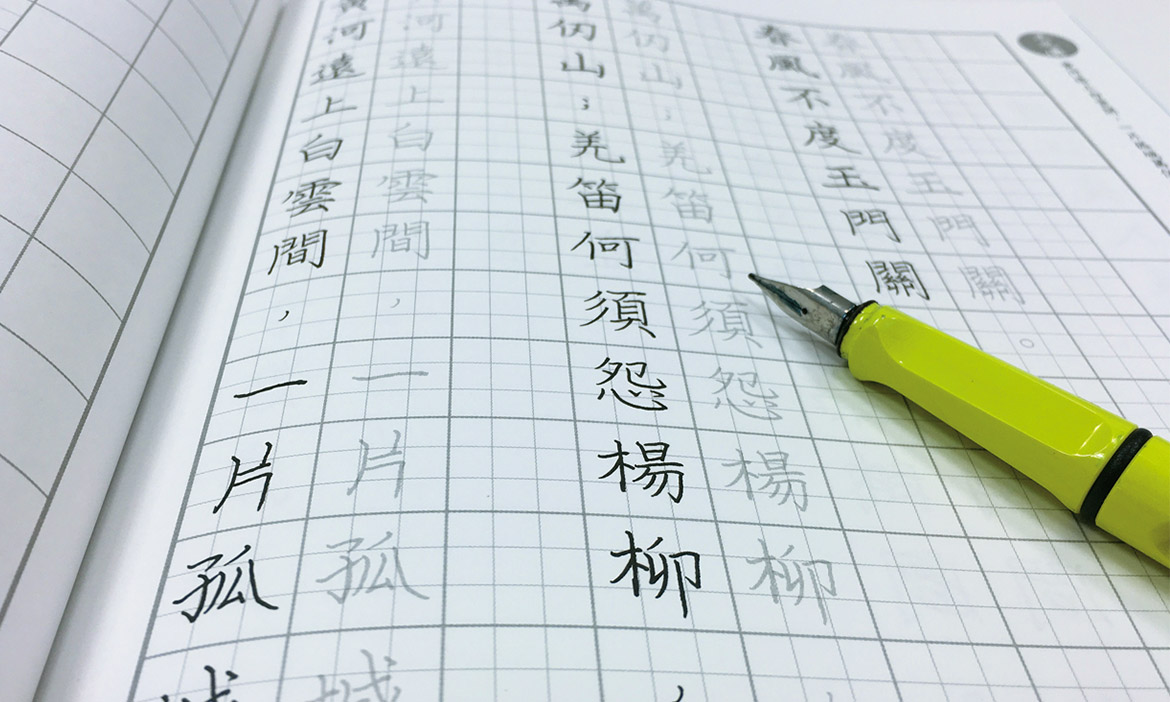 黃河遠上白雲間，一片孤城
河遠上白雲間，一片孤城
萬仞山；羌笛何須怨楊柳，
萬仞山；羌笛何須怨楊柳，
春風不度玉門關
春風不度玉門關。